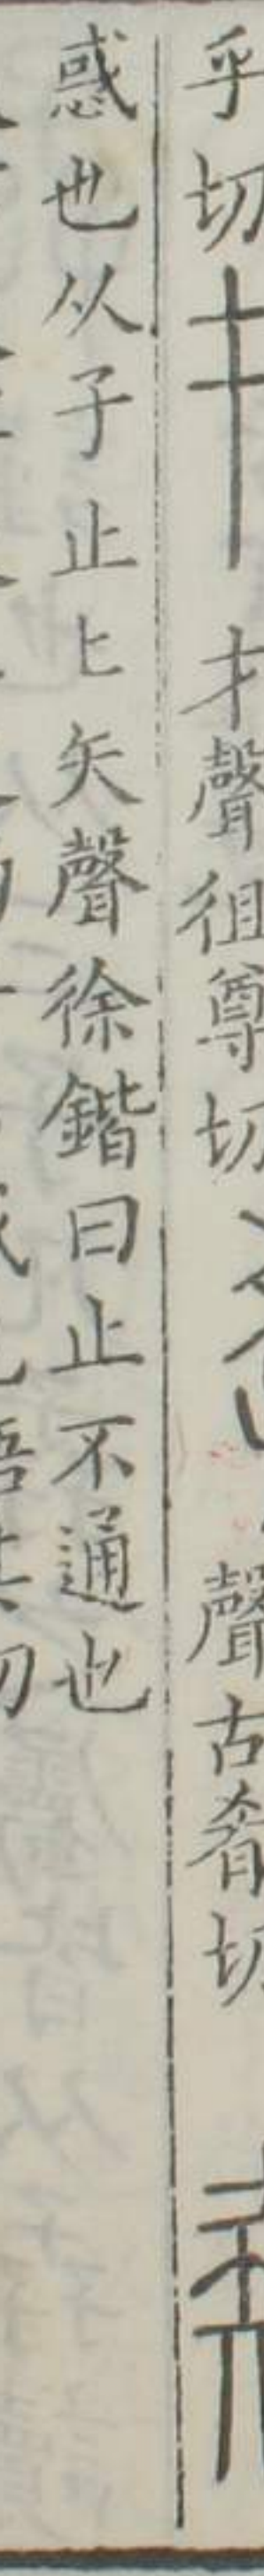 乎切 才聲徂尊切 聲古肴切
惑也从子止匕矢聲徐鍇曰止不通也